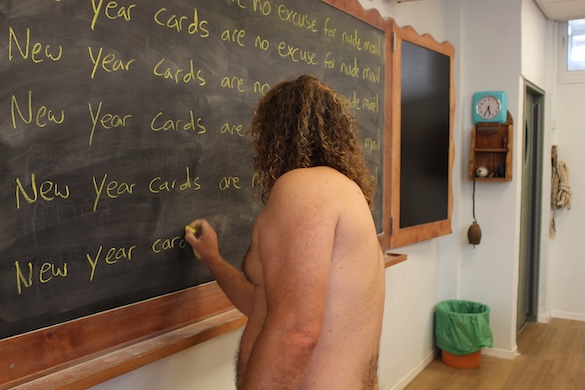 New year cards are no excuse for nude mail
New year cards are no excuse for nude mail
New year cards are nude mail
New year cards are mail
New year cards are n
New year card